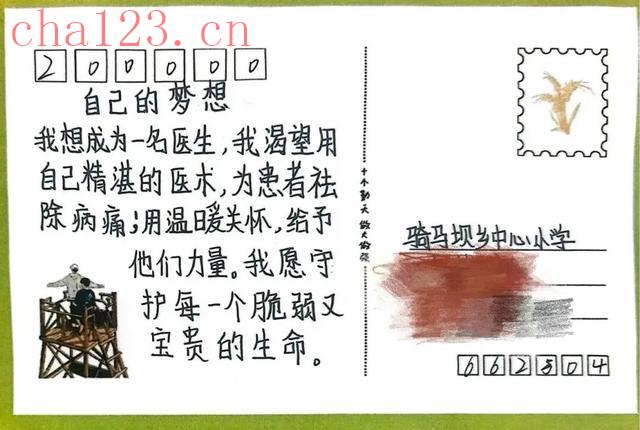 cha123.cn
200000
自己的梦想
我想成为一名医生,我渴望用
自己精湛的医术,为患者祛
除病痛;用温暖关怀,给予
他们力量。我愿守
护每一个脆弱又
宝贵的生命。
十个勤天
骑马坝乡中心小学
662504